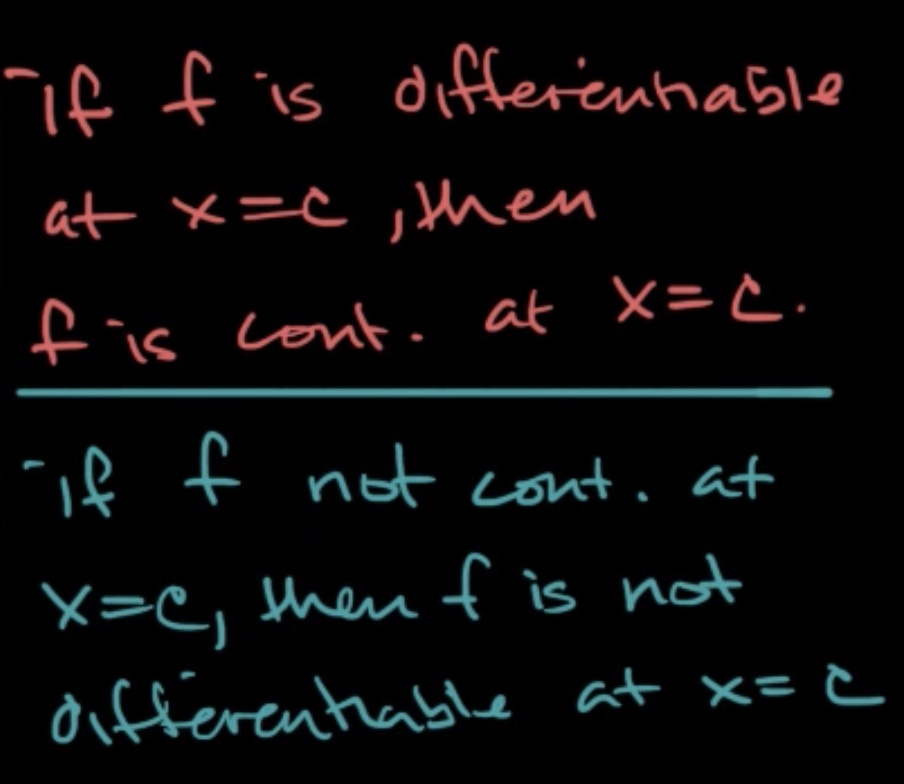 -If f is differentiable
at x=c, then
f is cont. at x=c.
-if f not cont. at
x=c, then f is not
differentiable at x=c